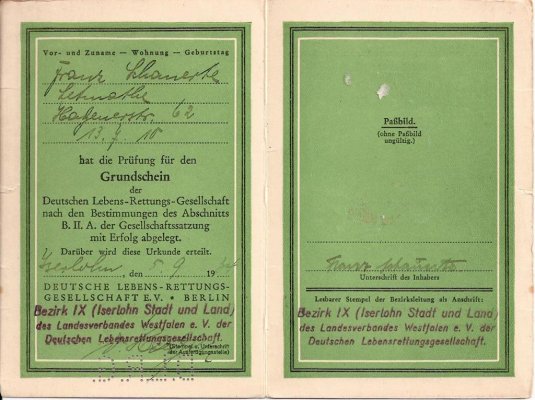 Vor- und Zuname — Wohnung — Geburtstag
Franz Schauerte
Letmathe
Hagenerstr. 62
13.7.10
hat die Prüfung für den
Grundschein
der
Deutschen Lebens-Rettungs-Gesellschaft
nach den Bestimmungen des Abschnitts
B. II. A. der Gesellschaftssatzung
mit Erfolg abgelegt.
Darüber wird diese Urkunde erteilt.
Iserlohn, den 5 9 19
DEUTSCHE LEBENS-RETTUNGS-
GESELLSCHAFT E.V. * BERLIN
Bezirk IX (Iserlohn Stadt und Land)
des Landesverbandes Westfalen e. V. der
Deutschen Lebensrettungsgesellschaft.
(Stempel u. Unterschrift
der Ausfertigungsstelle)
Paßbild.
(ohne Paßbild
ungültig.)
Franz Schauerte
Unterschrift des Inhabers
Lesbarer Stempel der Bezirksleitung als Anschrift:
Bezirk IX (Iserlohn Stadt und Land)
des Landesverbandes Westfalen e. V. der
Deutschen Lebensrettungsgesellschaft.